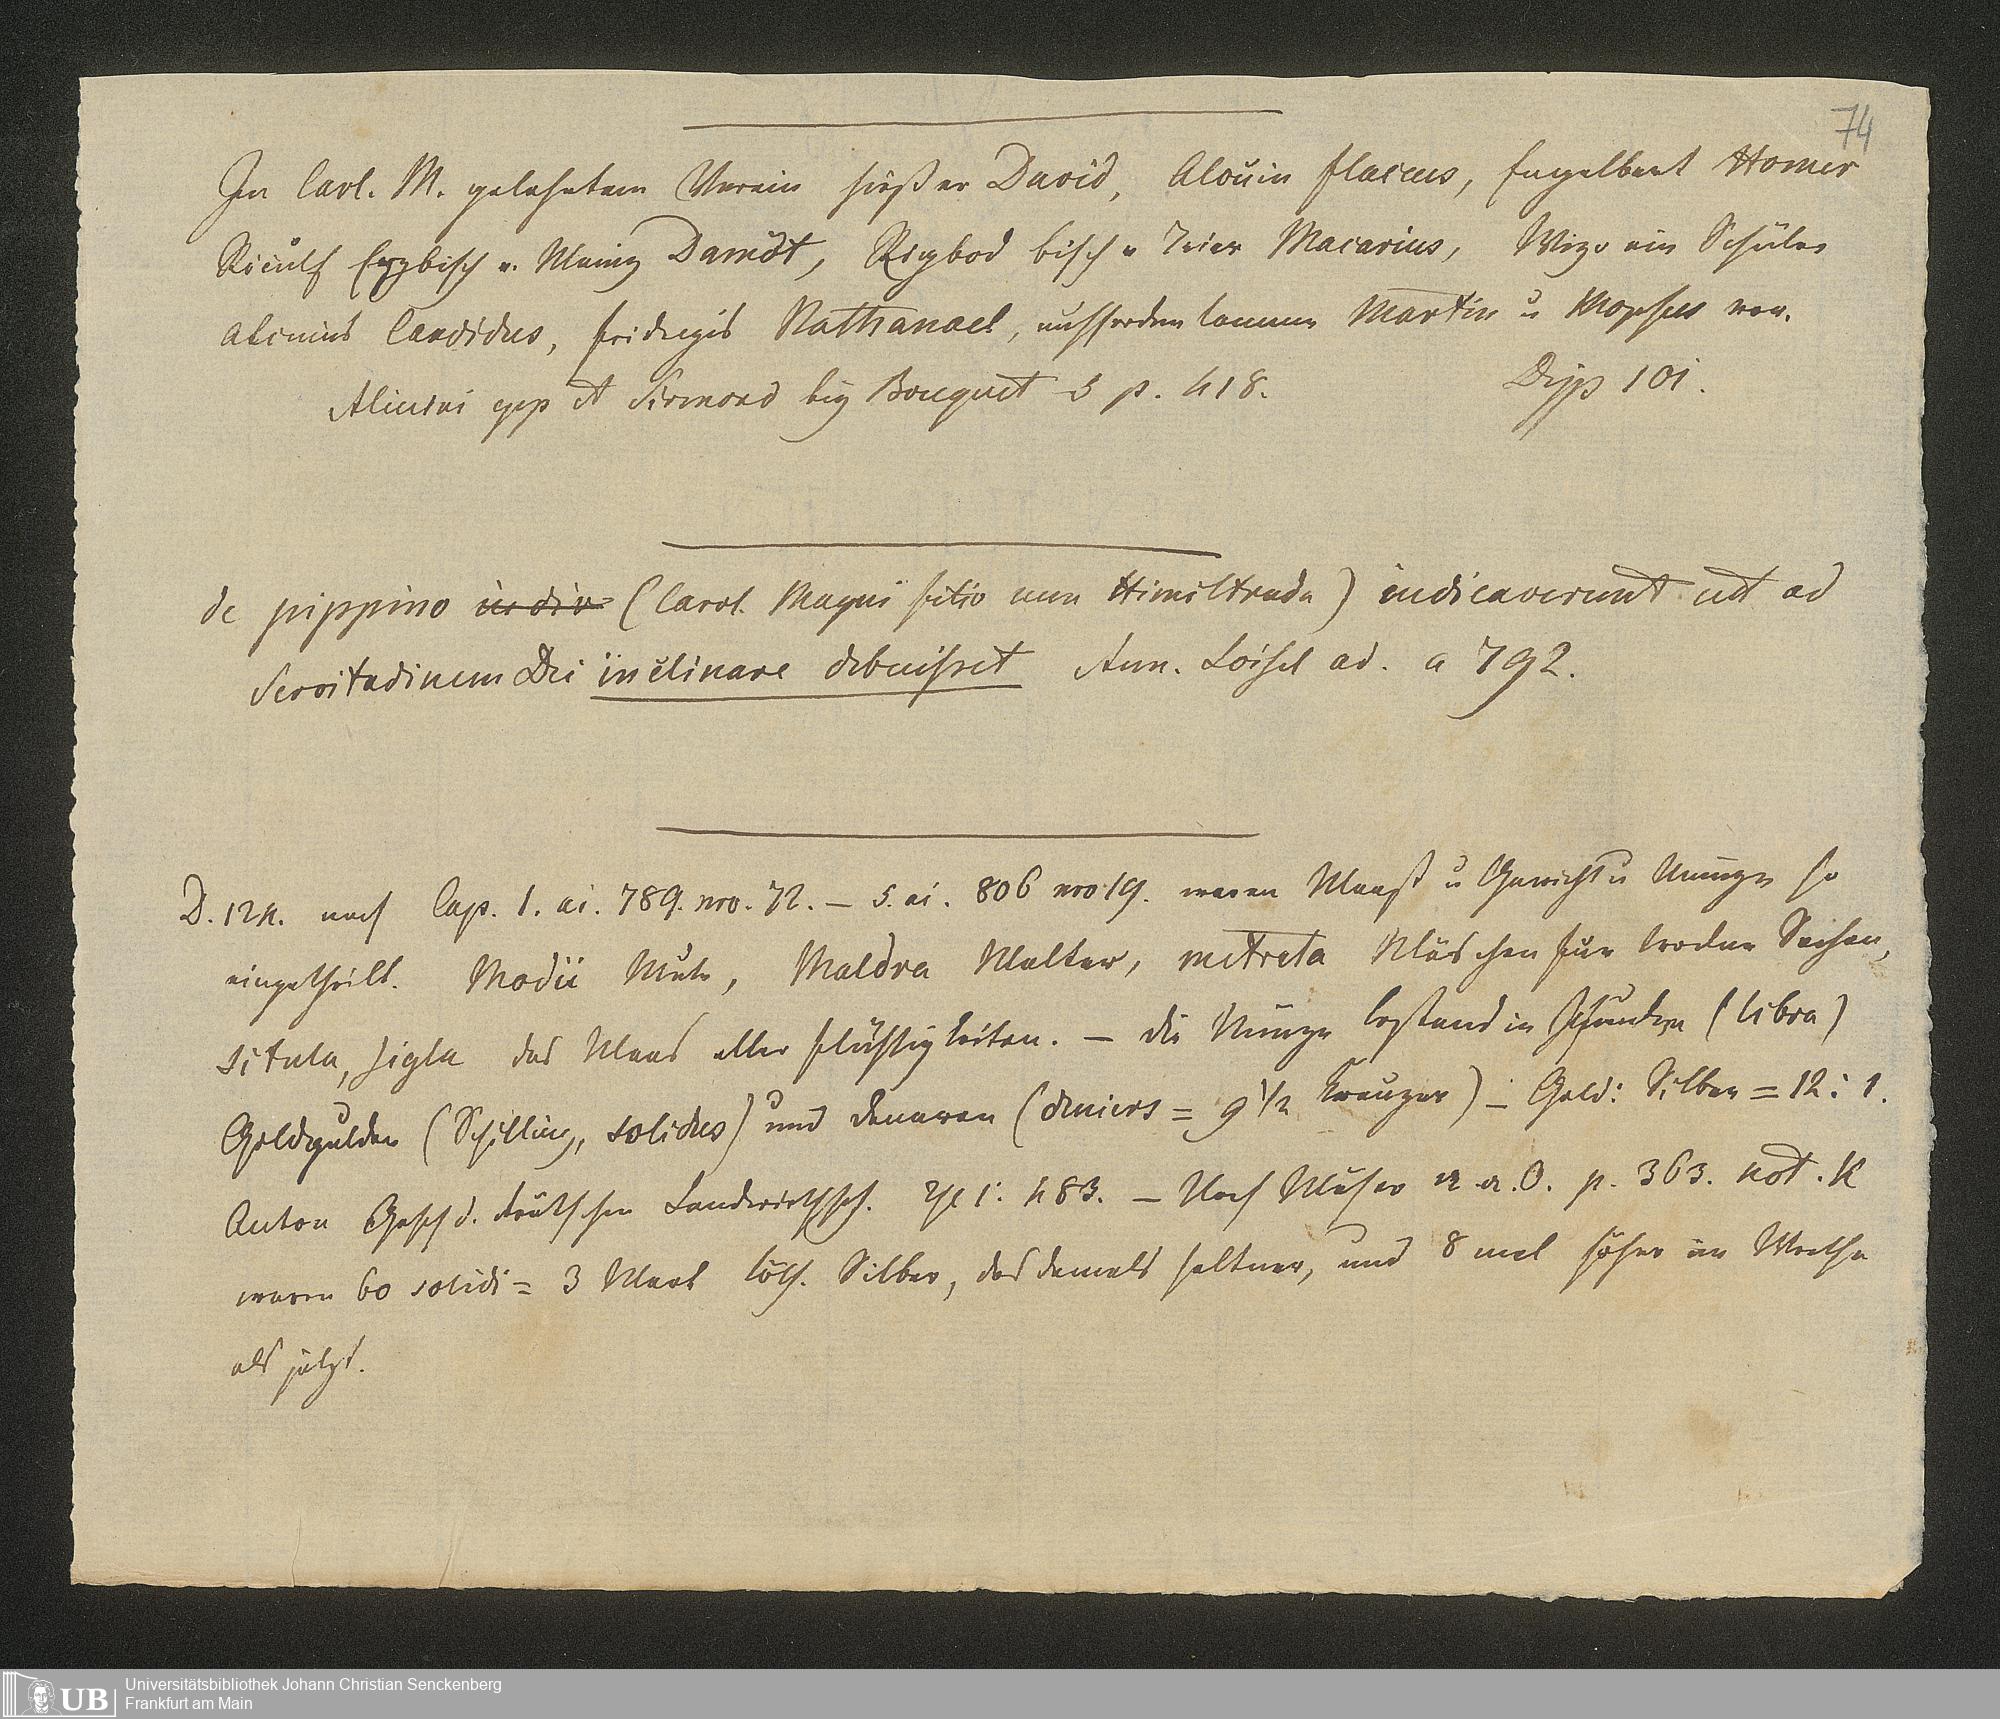 74
In Carl. M. gelehrtem Verein hieß er David, Alcuin Flaccus, Engelbert Homer
Riculf Erzbisch v. Mainz Damöt, Rigbod bisch v Trier Macarius, Wizo ein Schüler
Alcuins Candidus, fridegis Nathanael, ausserdem kommen Martin u Mopsus vor.
Alcuini epp et Sirmond bey Bouquet 5 p. 418. Dipp 101.
de pippino (Carol. Magni filio Himiltrude) indicaverunt ut ad
Servitudinem Dei inclinare debuisset Ann. Loisel ad. a 792.
D. 124. nach Cap. 1. ai. 789. nro. 72. — 5. ai. 806 nro 19. waren Maaß u Gewicht u Münzen so
eingetheilt. Modii Mutt, Maldra Malter, metreta Mäschen für trockne Sachen,
situla, sigla das Maas aller flüssigkeiten. — die Münze bestand in Pfunden (libra)
Goldgulden (Schilling, solidus) und denaren (deniers = 9 1/2 Kreuzer) — Gold: Silber = 12: 1.
Anton Gesch d. teutschen Landwirthsch. 483. — Nach Möser a. a. O. p. 363. not. K
waren 60 solidi = 3 Mark löth. Silber, das damals seltner, und 8 mal höher im Werthe
als jetzt.
Universitätsbibliothek Johann Christian Senckenberg
Frankfurt am Main
UB